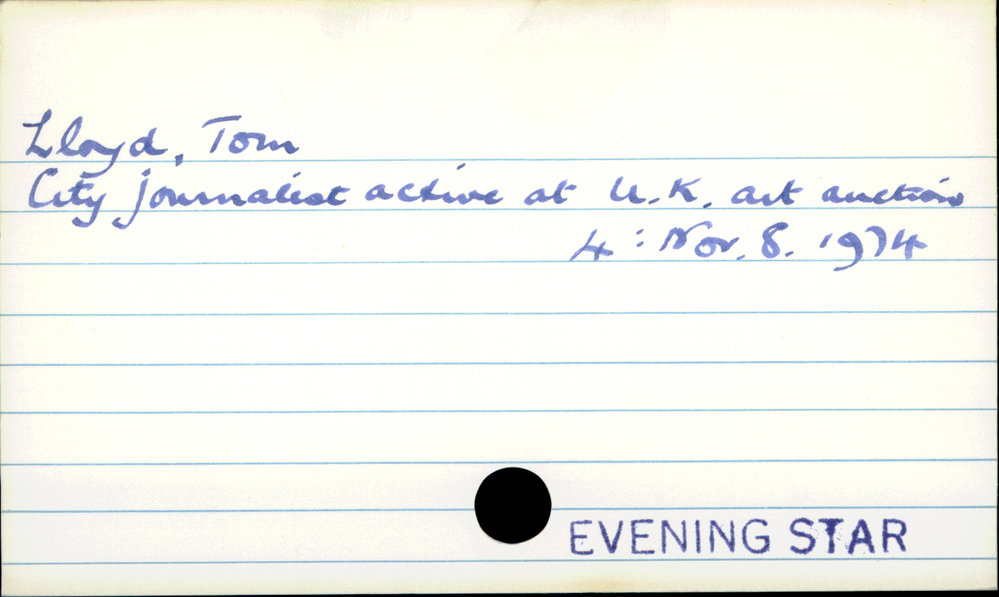 Lloyd, Tom
City journalist active at U.K. art auctions
4 : Nov. 8. 1974
EVENING STAR